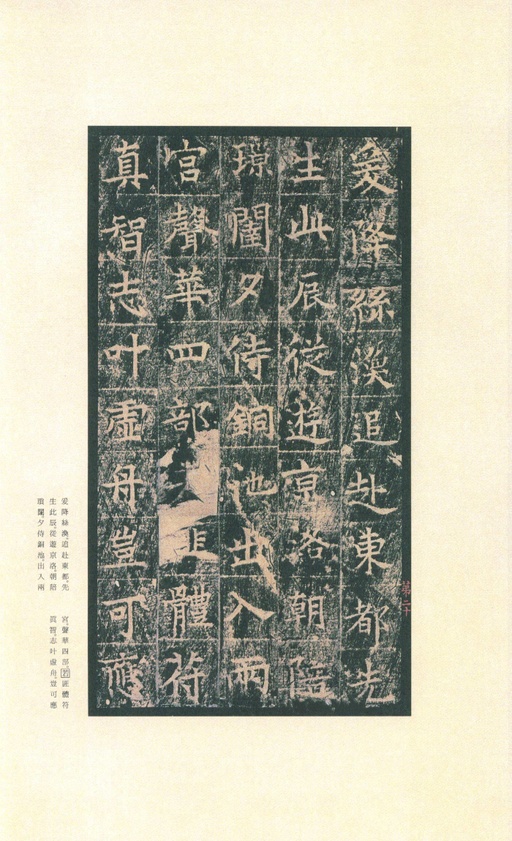 爰降絲渙追赴東都先
生此辰從遊京洛朝陪
夕侍銅池出入兩
宮聲華四部匪體符
真智志叶虛舟豈可應
爰降絲渙追赴東都先
生此辰從遊京洛朝陪
夕侍銅池出入兩
宮聲華四部若匪體符
眞智志叶虛舟豈可應